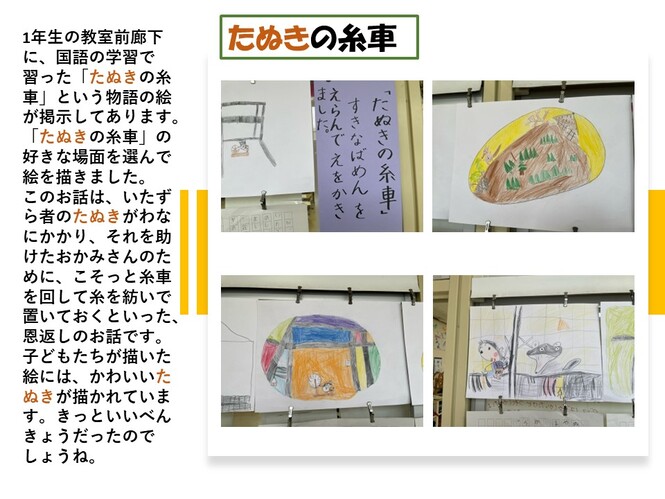 たぬきの糸車
1年生の教室前廊下
に、国語の学習で
習った「たぬきの糸
車」という物語の絵
が掲示してあります。
「たぬきの糸車」の
好きな場面を選んで
絵を描きました。
このお話は、いたず
ら者のたぬきがわな
にかかり、それを助
けたおかみさんのた
めに、こそっと糸車
を回して糸を紡いで
置いておくといった、
恩返しのお話です。
子どもたちが描いた
絵には、かわいいた
ぬきが描かれていま
す。きっといいべん
きょうだったので
しょうね。
「たぬきの糸車」
すきなばめんを
えらんでえをかき
ました。